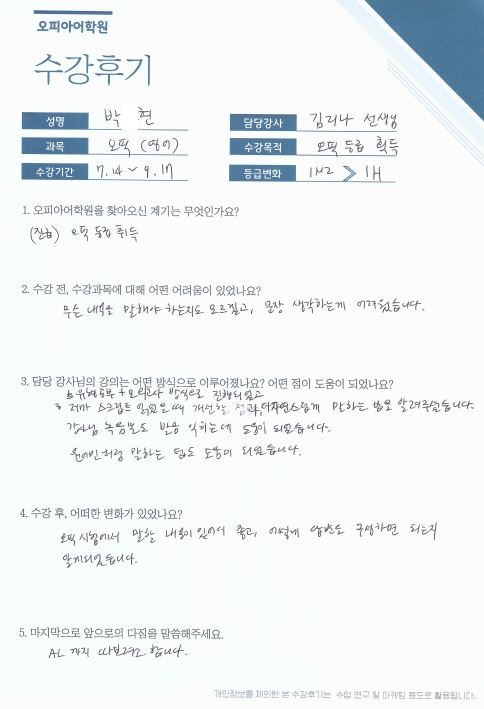 오피아어학원
수강후기
성명 박 현
담당강사 김리나 선생님
과목 오픽 (영어)
수강목적 오픽 등급 획득
수강기간 7.14 ~ 9.17
등급변화 IM2 》 IH
1. 오피아어학원을 찾아오신 계기는 무엇인가요?
(진급) 오픽 등급 취득
2. 수강 전, 수강과목에 대해 어떤 어려움이 있었나요?
무슨 내용을 말해야 하는지도 모르겠고, 문장 생각하는게 어려웠습니다.
3. 담당 강사님의 강의는 어떤 방식으로 이루어졌나요? 어떤 점이 도움이 되었나요?
유형공부 + 모의고사 방식으로 진행되었고
제가 스크립트 읽었을 때 개선할 점과, 더 자연스럽게 말하는 법을 알려주셨습니다.
강사님 녹음본도 발음 익히는데 도움이 되었습니다.
원어민처럼 말하는 팁도 도움이 되었습니다.
4. 수강 후, 어떠한 변화가 있었나요?
오픽시험에서 말할 내용이 있어서 좋고, 어떻게 답변을 구성하면 되는지
알게되었습니다.
5. 마지막으로 앞으로의 다짐을 말씀해주세요.
AL 까지 따보려고 합니다.
개인정보를 제외한 본 수강후기는 수업 연구 및 마케팅 용도로 활용됩니다.